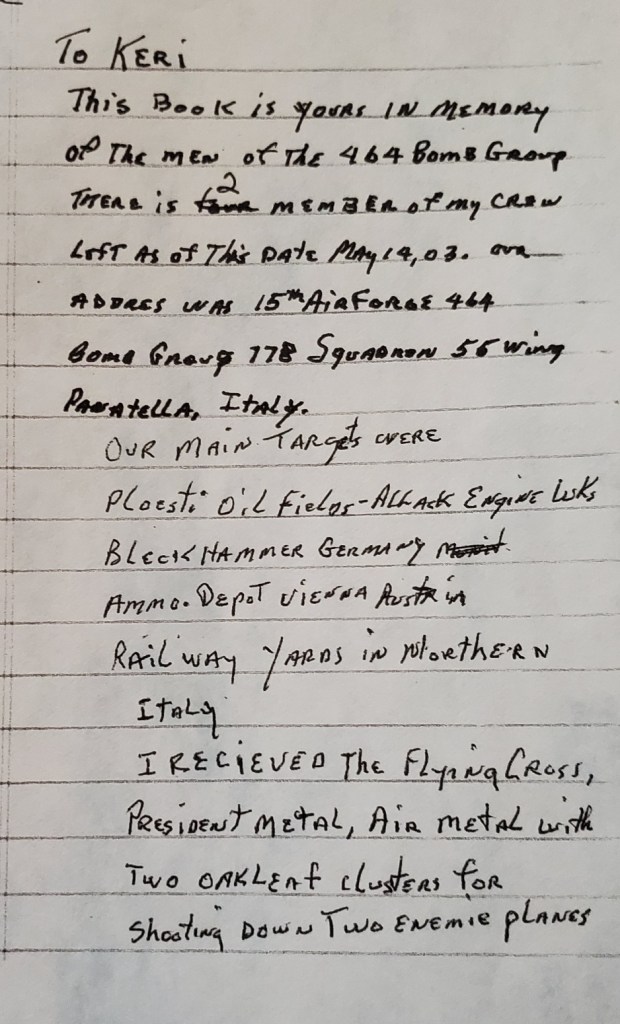 To KERi
This Book is yours IN MEMORY
of The MEN of THE 464 Bomb Group
THERE is 2 MEMBER of my CREW
LEFT AS of This DATE MAY 14, 03. our
ADDRES WAS 15th AiRFORCE 464
Bomb Group 778 SQUADRON 55 Wing
PANATELLA, ITALY.
OUR MAIN TARGETS WERE
Ploesti Oil Fields - Attack ENGINE
BLECKHAMMER GERMANY
Ammo. DEPOT VIENNA AUSTRIA
RAILWAY YARDS iN NORTHERN
ITALY
I RECIEVED The Flying CROSS,
PRESIDENT METAL, AIR METAL with
Two OAKLEAF clusters for
Shooting DOWN TWO ENEMIE PLANES